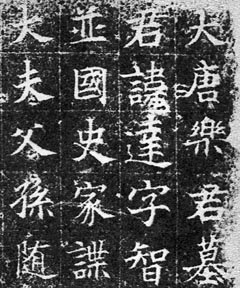 大唐樂君墓
君諱達字智
並國史家諜
大夫父孫随